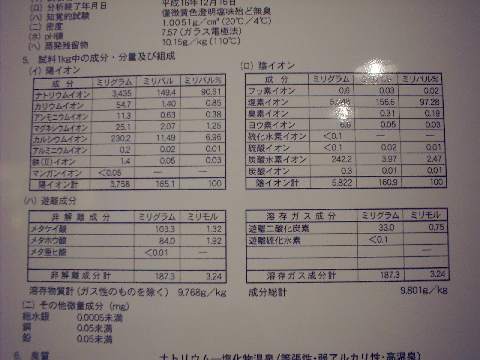 (ロ) 分析終了年月日 平成16年12月16日
(ハ) 知覚的試験 僅微黄色澄明塩味殆ど無臭
(ニ) 密度 1.0051g/cm³ (20℃/4℃)
(ホ) pH値 7.57 (ガラス電極法)
(ヘ) 蒸発残留物 10.15g/kg (110℃)
5. 試料1kg中の成分・分量及び組成
(イ) 陽イオン
成分 ミリグラム ミリバル ミリバル%
ナトリウムイオン 3,435 149.4 90.51
カリウムイオン 54.7 1.40 0.85
アンモニウムイオン 11.3 0.63 0.38
マグネシウムイオン 25.1 2.07 1.25
カルシウムイオン 230.2 11.49 6.96
アルミニウムイオン 0.2 0.02 0.01
鉄(Ⅱ)イオン 1.4 0.05 0.03
マンガンイオン <0.05 — —
陽イオン計 3,758 165.1 100
(ロ) 陰イオン
成分 ミリグラム ミリバル ミリバル%
フッ素イオン 0.6 0.03 0.02
塩素イオン 156.5 97.28
臭素イオン 0.31 0.19
ヨウ素イオン 6.9 0.05 0.03
硫化水素イオン <0.1 — —
硫酸イオン <0.1 0.02 0.01
炭酸水素イオン 242.2 3.97 2.47
炭酸イオン 0.3 0.01 0.01
陰イオン計 5,822 160.9 100
(ハ) 遊離成分
非解離成分 ミリグラム ミリモル
メタケイ酸 103.3 1.32
メタホウ酸 84.0 1.92
メタ亜ヒ酸 <0.01 —
非解離成分計 187.3 3.24
溶存ガス成分 ミリグラム ミリモル
遊離二酸化炭素 33.0 0.75
遊離硫化水素 <0.1 —
溶存ガス成分計 187.3 3.24
溶存物質計 (ガス性のものを除く) 9,768g/kg
成分総計 9,801g/kg
(ニ) その他微量成分 (mg)
総水銀 0.0005未満
銅 0.05未満
鉛 0.05未満
6. 泉質 ナトリウム—塩化物温泉 (等張性・弱アルカリ性・高温泉)